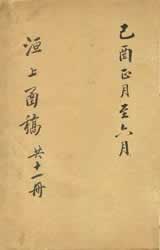 己酉正月至六月
洹上函稿 共十一册